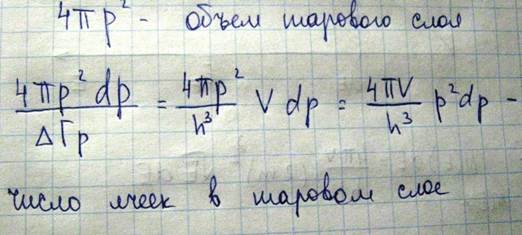 4πp² - объем шарового слоя
4πp²dp / ΔГp = 4πp² / h³ V dp = 4πV / h³ p²dp -
число ячеек в шаровом слое